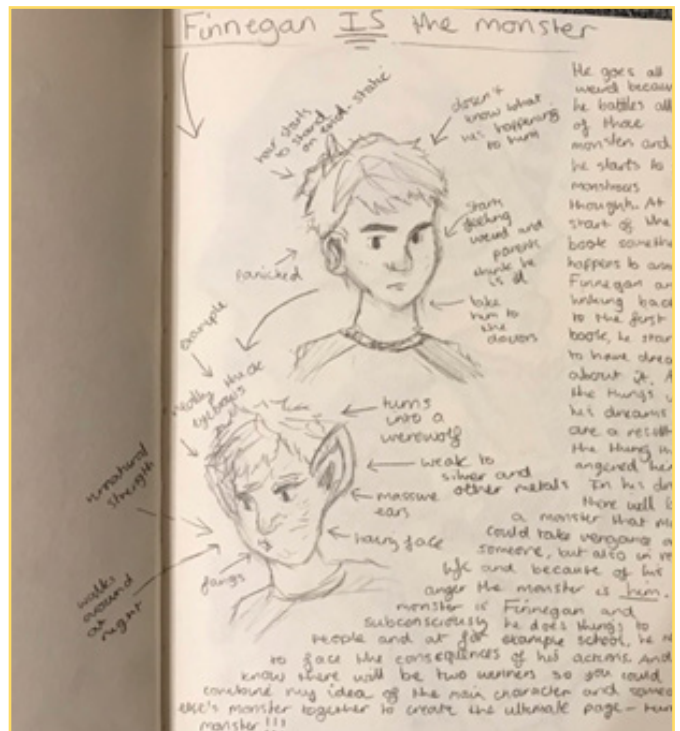 Finnegan IS the monster
hair starts
to stand
on end. static
doesn't
know what
his happening
to him
panicked
starts
feeling
weird and
parents
think he
is ill
take
him to
the
doctors
example
really thick
eyebrows
turns
into a
werewolf
weak to
silver and
other metals
massive
ears
hairy face
fangs
unnatural
strength
walks
around
at
night
He goes all
weird becau
he battles all
of those
monsters and
he starts to
monstrous
thoughts. At
start of the
book someth
happens to
Finnegan an
linking back
to the first
book, he star
to have drea
about it. A
the things
his dreams
are a result
the thing
angered him
In his
there will
a monster that
could take vengance
someone, but also in re
life and because of his
anger the monster is him.
monster is Finnegan and
subconsciously he does things to
people and at for example school, he
to face the consequences of his actions. And
know there will be two winners so you could
combine my idea of the main character and someo
else's monster together to create the ultimate page -
monster!!!